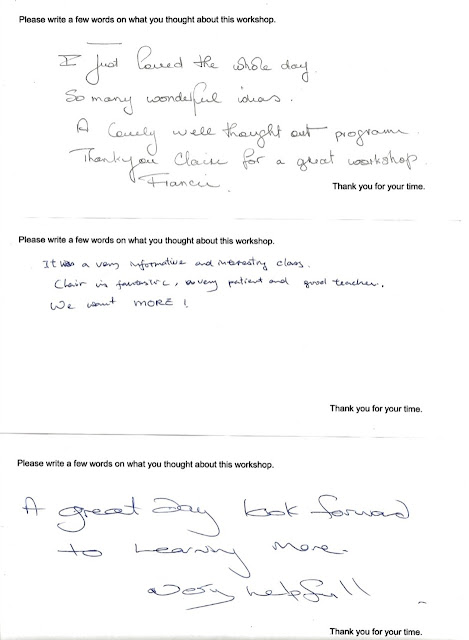 Please write a few words on what you thought about this workshop.
I Just Loved the whole day.
So many wonderful ideas.
A Lovely well thought out program.
Thankyou Claire for a great workshop.
Francie.
Thank you for your time.
Please write a few words on what you thought about this workshop.
It was a very informative and interesting class.
Clair is fantastic, a very patient and good teacher.
We want MORE!
Thank you for your time.
Please write a few words on what you thought about this workshop.
A great Day look forward
to Learning more.
Very helpfull
Thank you for your time.